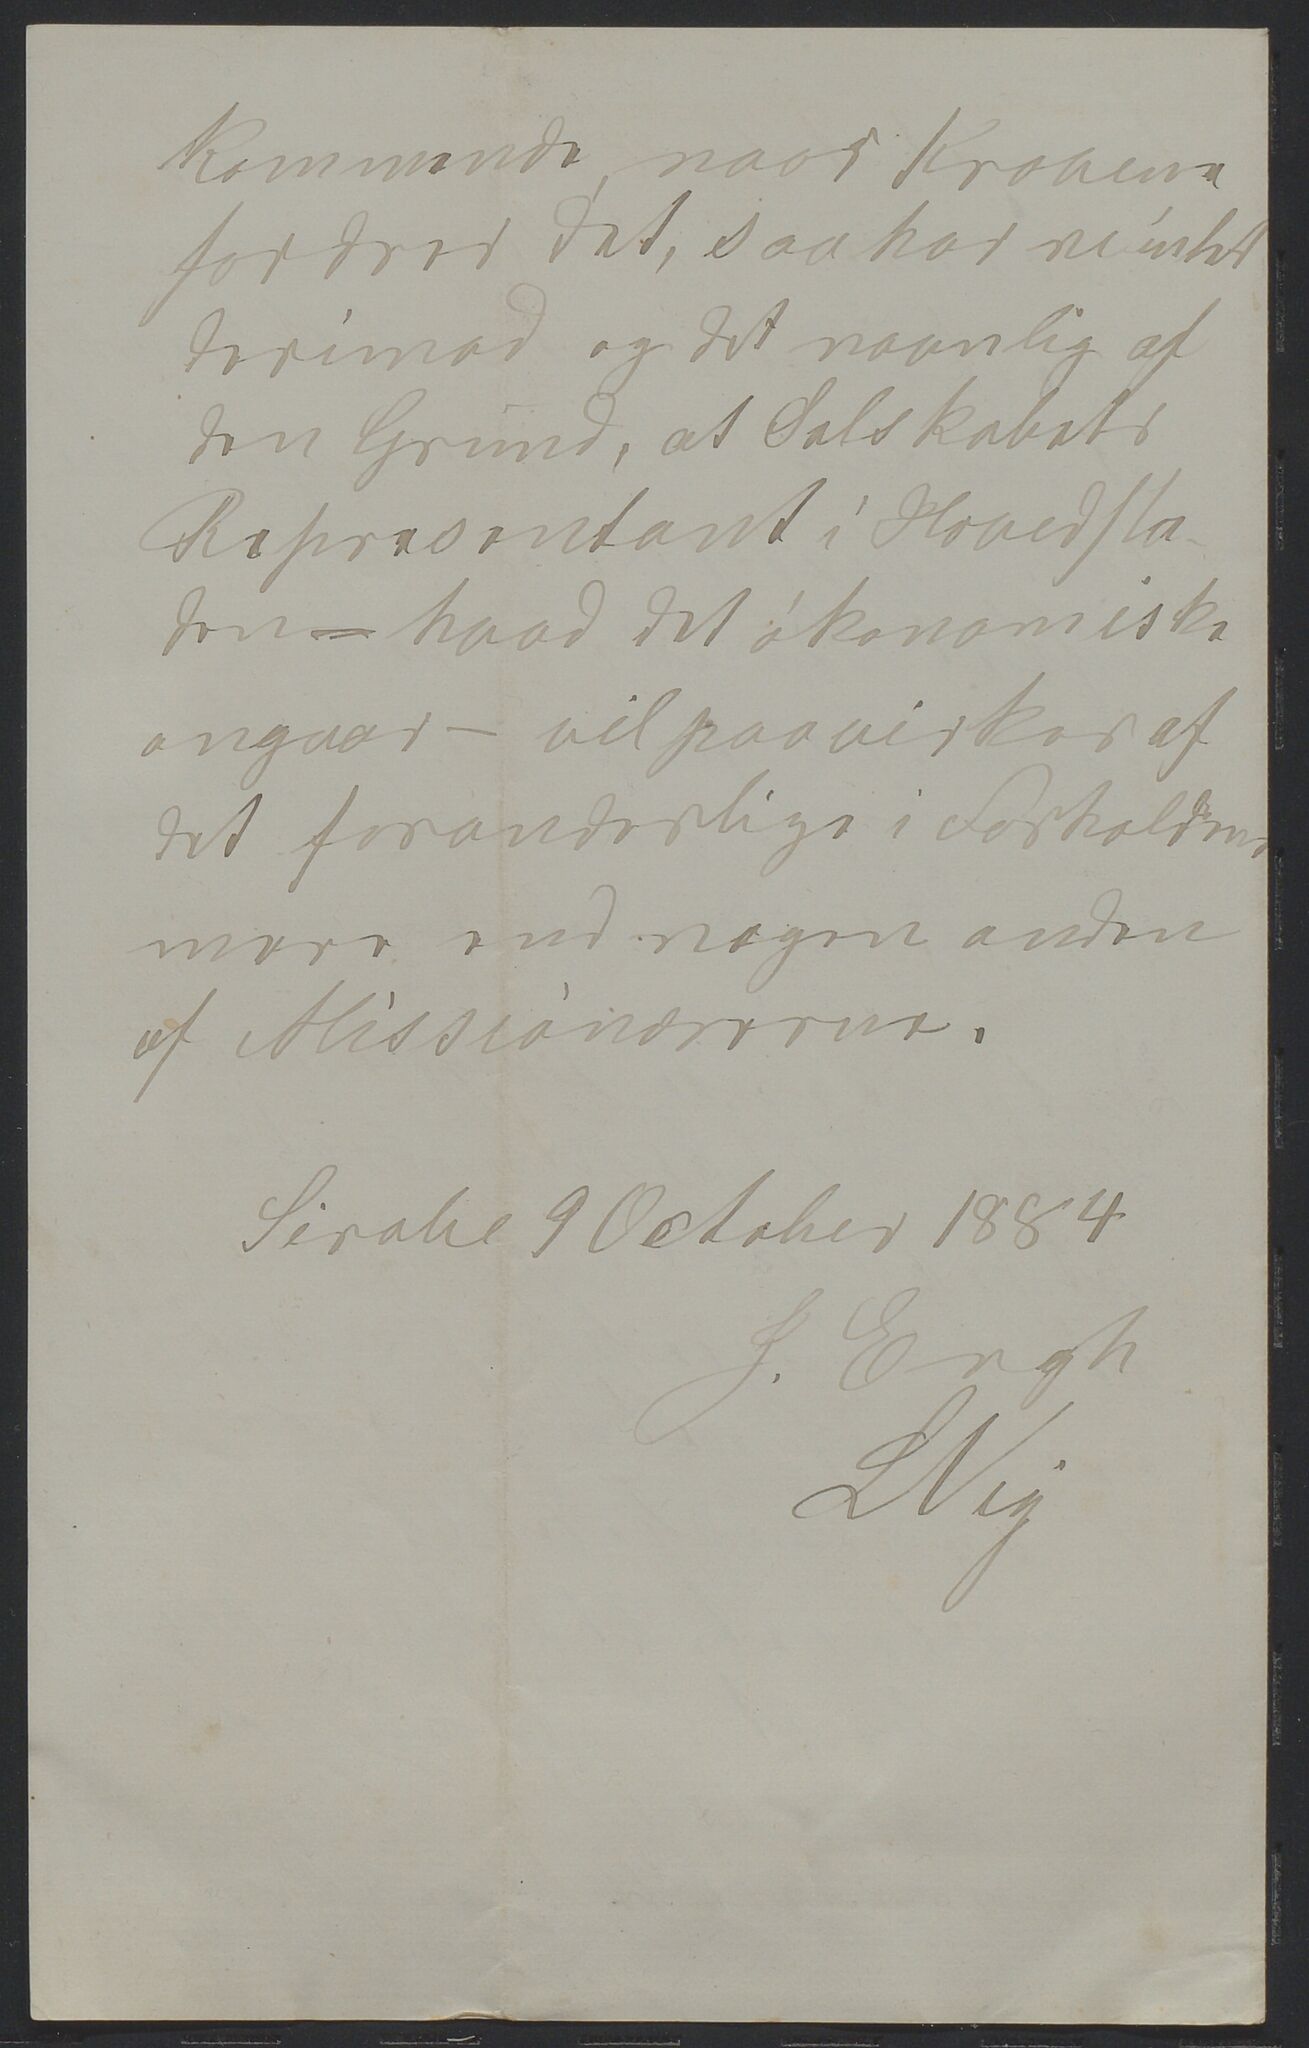 kommende, naar Kravene
fordrer det, saa har vi intet
derimod og det navnlig af
den Grund, at Selskabets
Representant i Hovedsta-
den – hvad det økonomiske
angaar – vil paavirkes af
det foranderlige i Forholdene
mere end nogen anden
af Missionærerne.
Sirabe 9 October 1884
J. Engh
L Vig